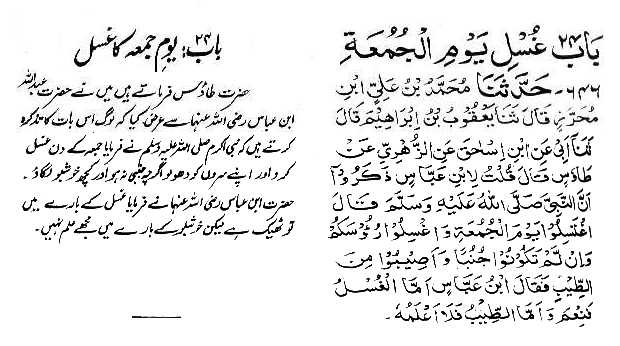 باب ۲۴ غُسْلِ يَوْمِ الْجُمُعَةِ
۶۴۶۔ حَدَّثَنَا مُحَمَّدُ بْنُ عَلِيِّ ابْنِ
مُحْرِزٍ قَالَ ثَنَا يَعْقُوْبُ بْنُ اِبْرَاهِيْمَ قَالَ
ثَنَا اَبِيْ عَنِ ابْنِ اِسْحٰقَ عَنِ الزُّهْرِيِّ عَنْ
طَاوُسَ قَالَ قُلْتُ لِابْنِ عَبَّاسٍ ذَكَرُوْا
اَنَّ النَّبِيَّ صَلَّى اللهُ عَلَيْهِ وَسَلَّمَ قَالَ
اغْتَسِلُوْا يَوْمَ الْجُمُعَةِ وَاغْسِلُوْا رُؤُسَكُمْ
وَاِنْ لَّمْ تَكُوْنُوْا جُنُبًا وَاَصِيْبُوْا مِنَ
الطِّيْبِ فَقَالَ ابْنُ عَبَّاسٍ اَمَّا الْغُسْلُ
فَنَعَمْ وَاَمَّا الطِّيْبُ فَلَا اَعْلَمُهُ۔
باب ۲۴: یومِ جمعہ کا غسل
حضرت طاؤس فرماتے ہیں میں نے حضرت عبداللہ
ابن عباس رضی اللہ عنہما سے عرض کیا کہ لوگ اس بات کا تذکرہ
کرتے ہیں کہ نبی اکرم صلی اللہ علیہ وسلم نے فرمایا جمعہ کے دن غسل
کرو اور اپنے سروں کو دھولو اگرچہ جنبی نہ ہو اور کچھ خوشبو لگاؤ۔
حضرت ابن عباس رضی اللہ عنہما نے فرمایا غسل کے بارے میں
تو ٹھیک ہے لیکن خوشبو کے بارے میں مجھے علم نہیں۔